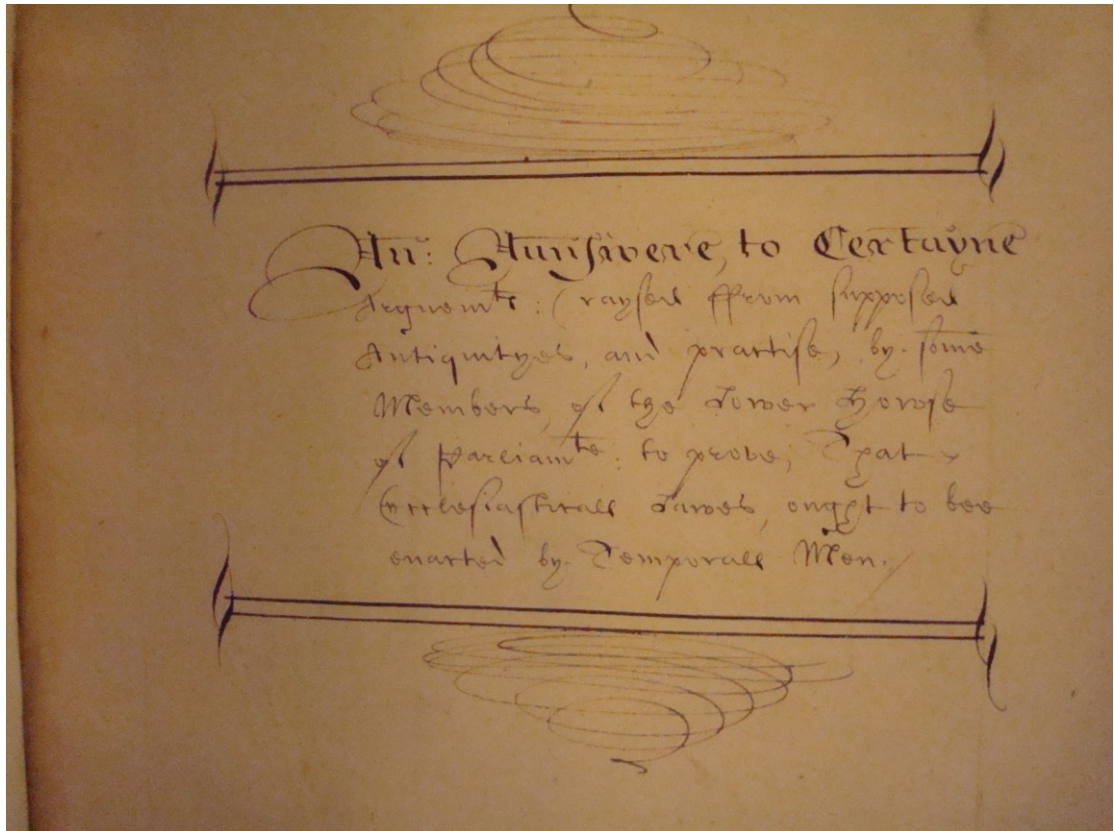 An: Aunswere, to Certayne
Arguemts: (raysed ffrom supposed
Antiquityes, and practise, by some
Members, of the Lower Howse
of Parliamte: to prove, That
Ecclesiasticall Lawes, ought to bee
enacted by Temporall Men.